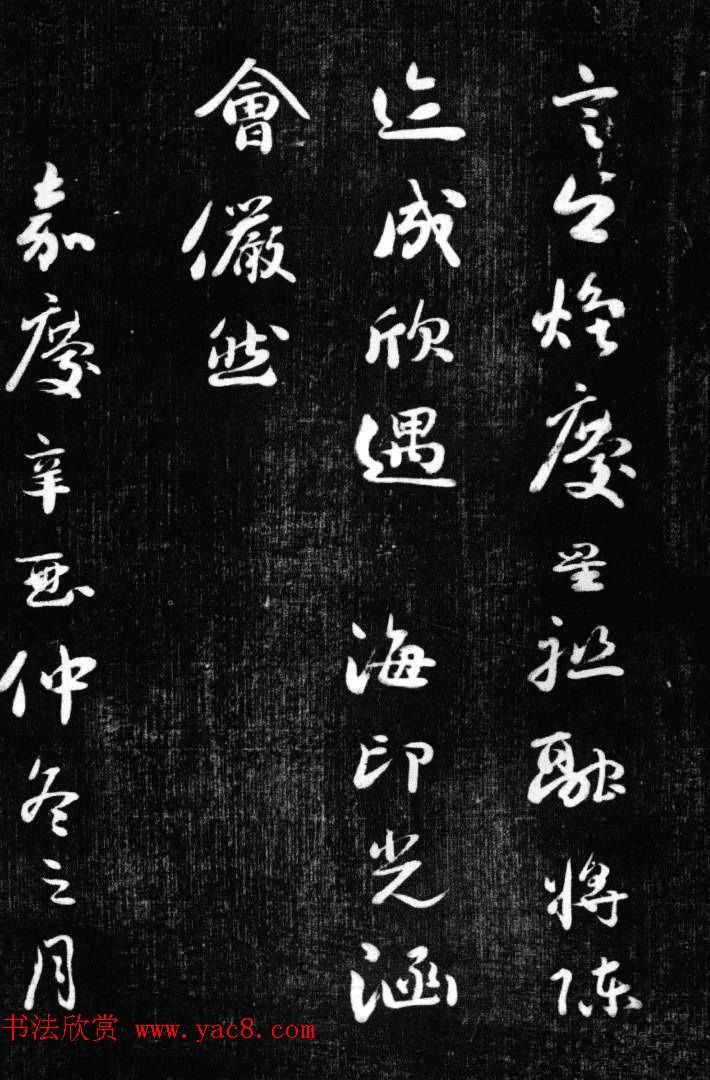 言慶星融將陳
迹成欣遇 海印光涵
會儼然
嘉慶辛酉仲冬之月
书法欣赏 www.yac8.com